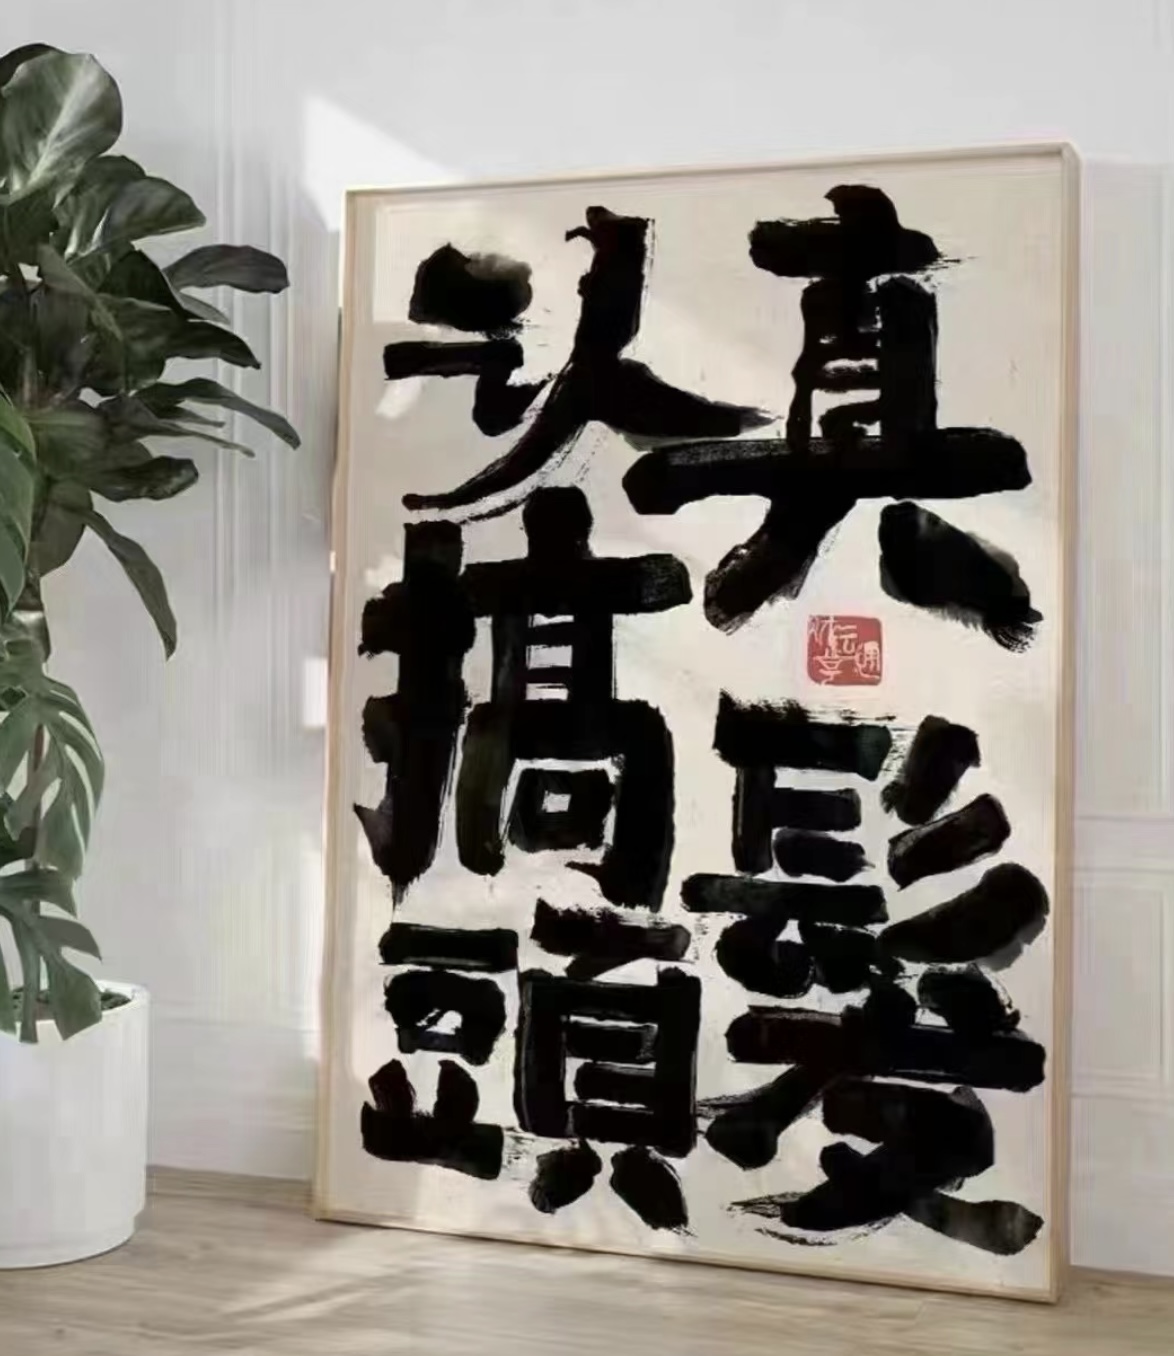 认真
搞頭髮